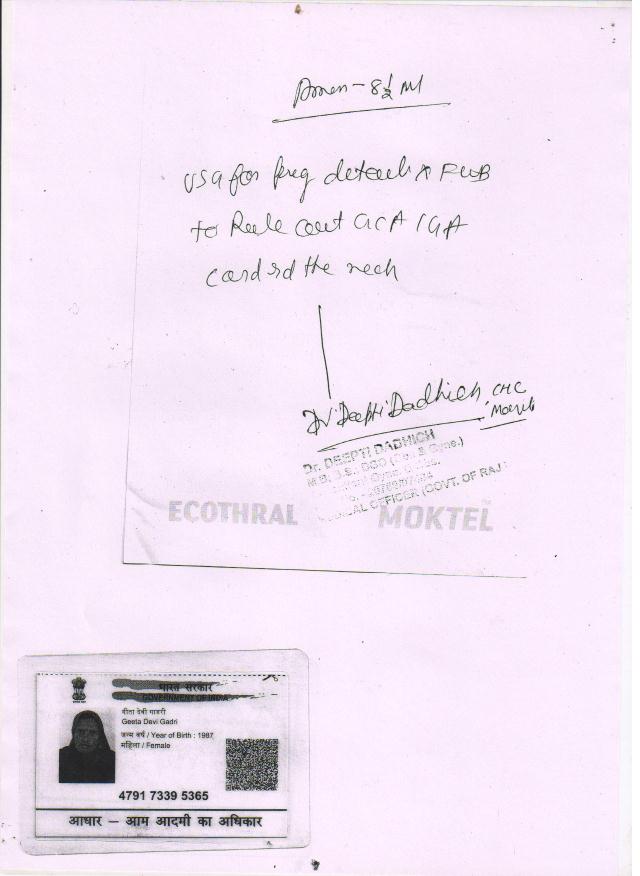 Amen - 8½ M
USG for preg details & FWB
to Rule out GCA / GA
cord rd the neck
Dr Deepti Dadhich, CHC
Dr. DEEPTI DADHICH
M.B.B.S., DGO (Obs. & Gyne.)
MEDICAL OFFICER (GOVT. OF RAJ.)
ECOTHRAL
MOKTEL
भारत सरकार
GOVERNMENT OF INDIA
गीता देवी गाडरी
Geeta Devi Gadri
जन्म वर्ष / Year of Birth : 1987
महिला / Female
4791 7339 5365
आधार – आम आदमी का अधिकार